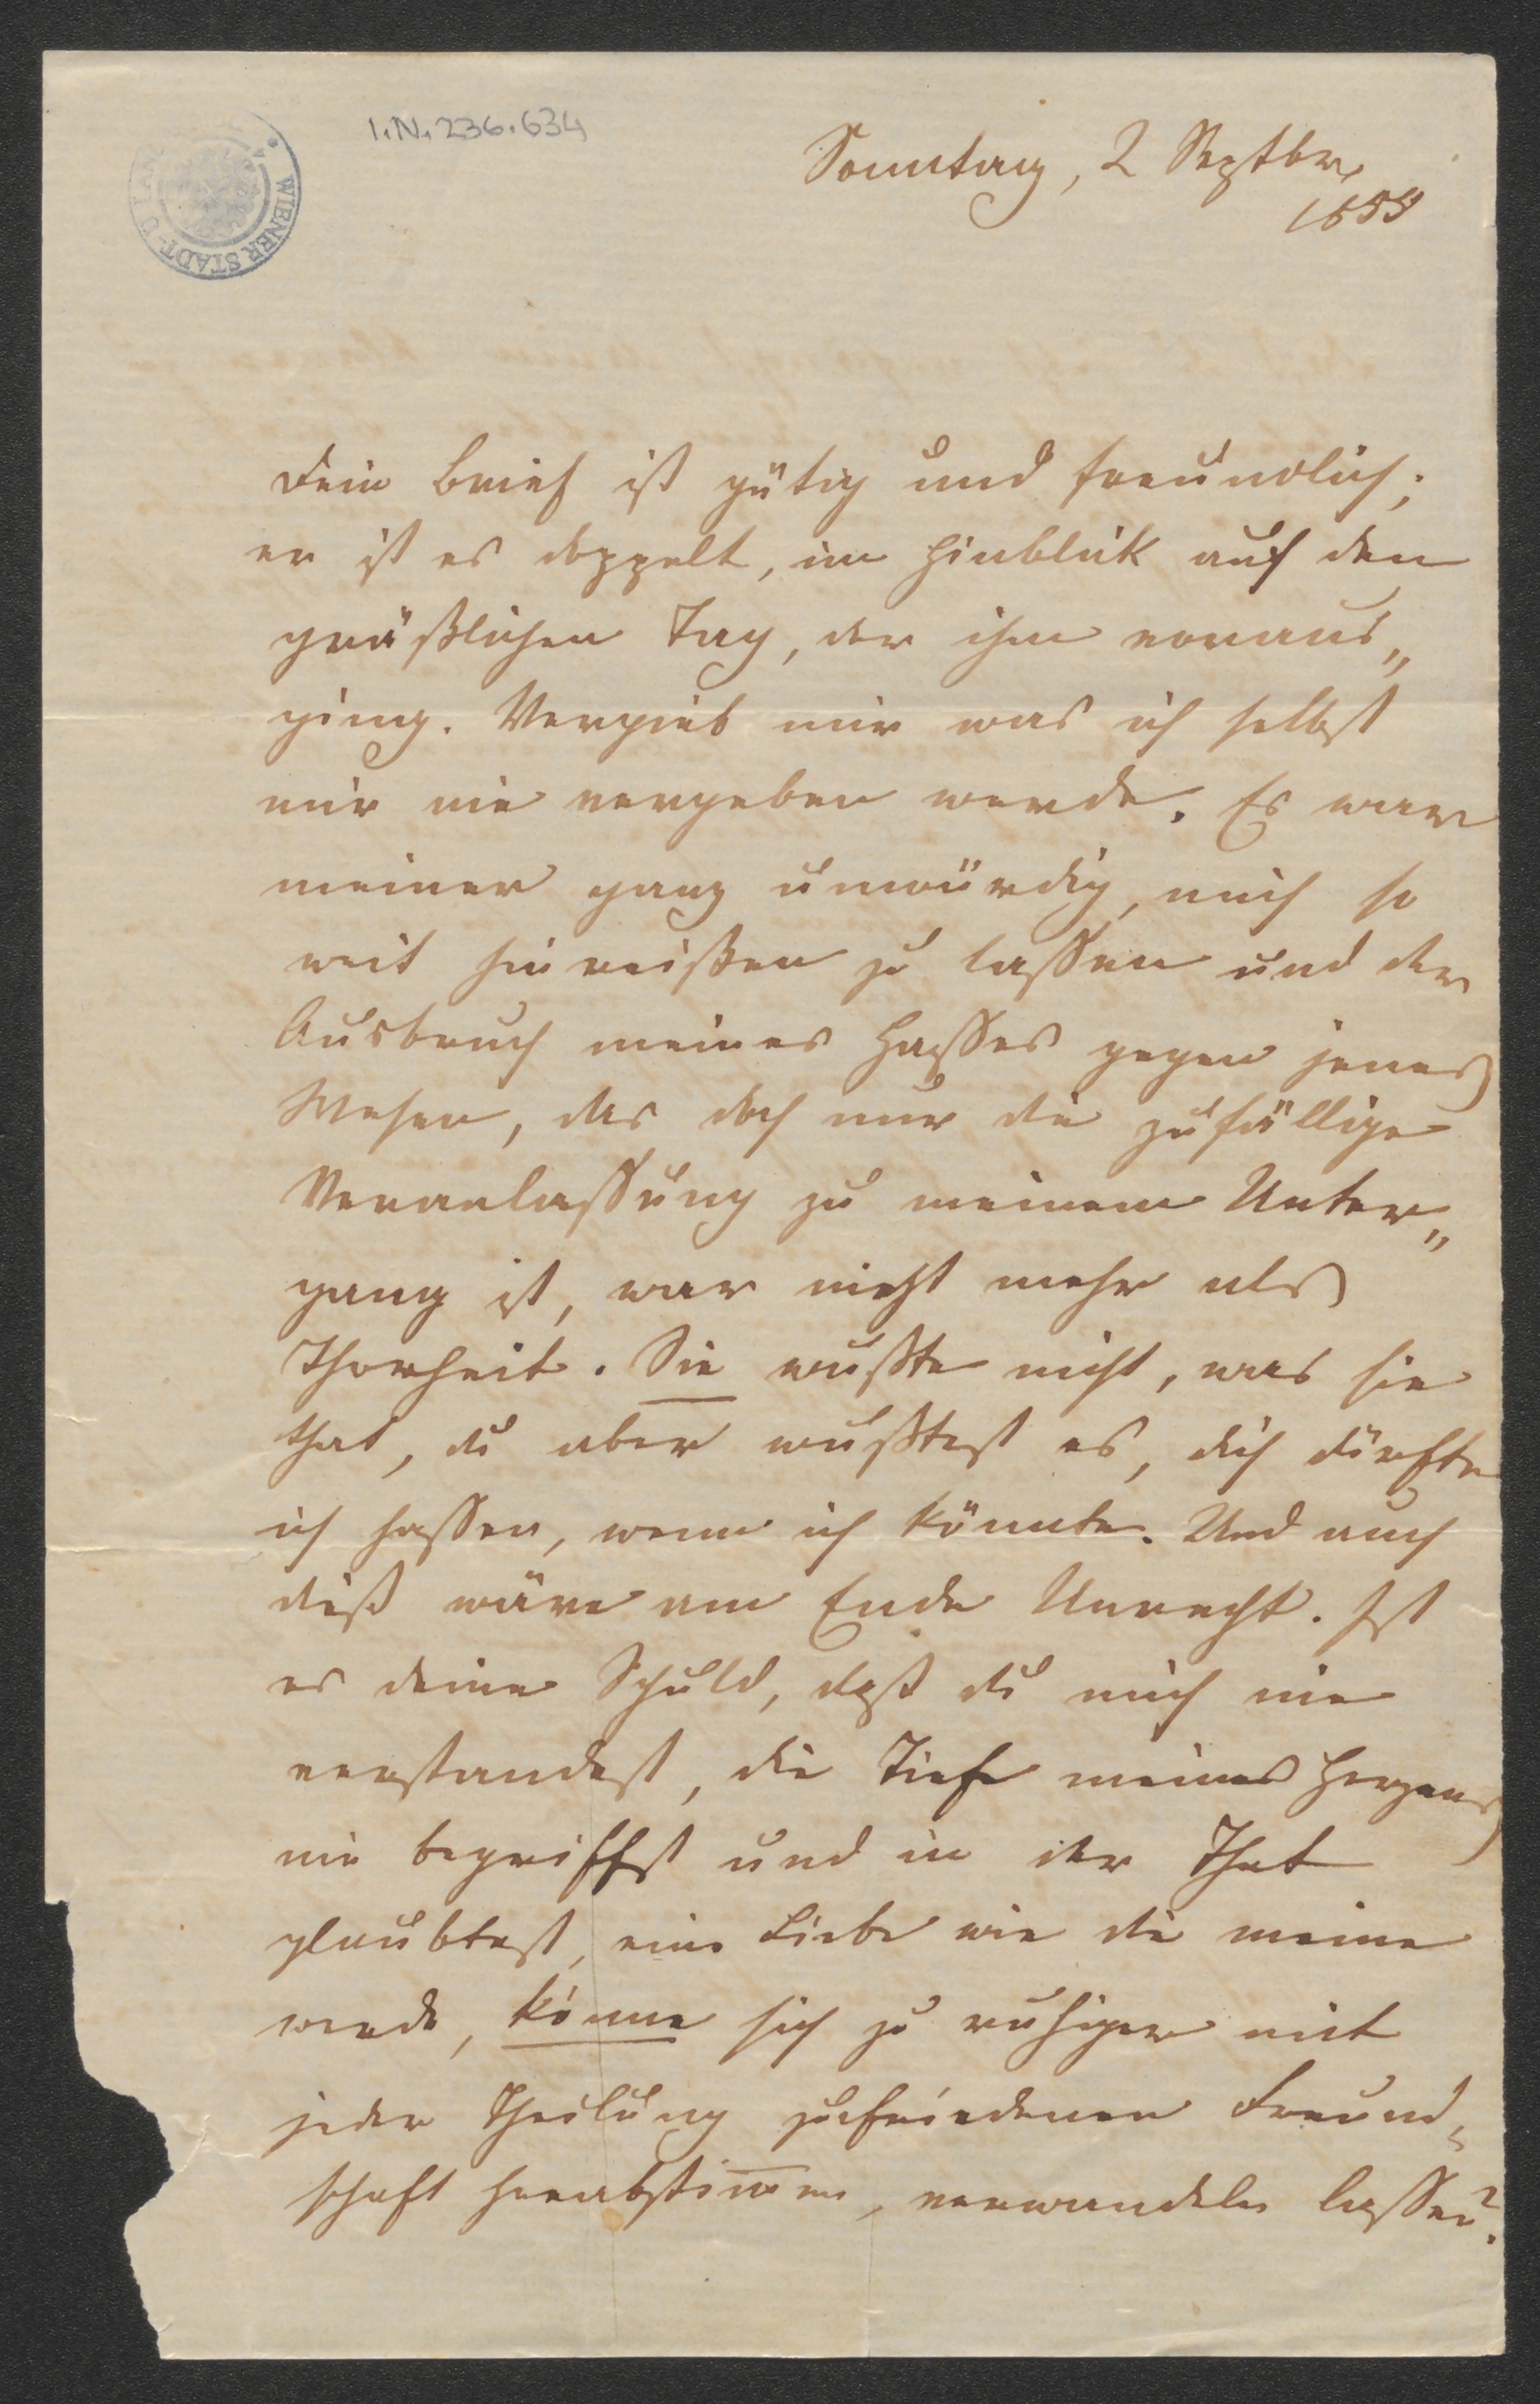 I.N. 236.634
WIENER STADT-U
Sonntag, 2 Septbr.
1855
Dein Brief ist gütig und freundlich;
er ist es doppelt, im Hinblick auf den
gräßlichen Tag, der ihm voraus„
ging. Vergieb mir was ich selbst
mir nie vergeben werde. Es war
meiner ganz unwürdig, mich so
weit hinreißen zu lassen und der
Ausbruch meines Hasses gegen jenes
Wesen, das doch nur die zufällige
Veranlassung zu meinem Unter„
gang ist, war nicht mehr als
Thorheit. Sie wußte nicht, was sie
that, du aber wußtest es, dich dürfte
ich hassen, wenn ich könnte. Und auch
dieß wäre am Ende Unrecht. Ist
es deine Schuld, daß du mich nie
verstandest, die Tiefe meines Herzens
nie begriffst und in der That
glaubtest, eine Liebe wie die meine
werde, könne sich zu ruhiger mit
jeder Theilung zufriedener Freund„
schaft herabstimmen, verwandeln lassen?